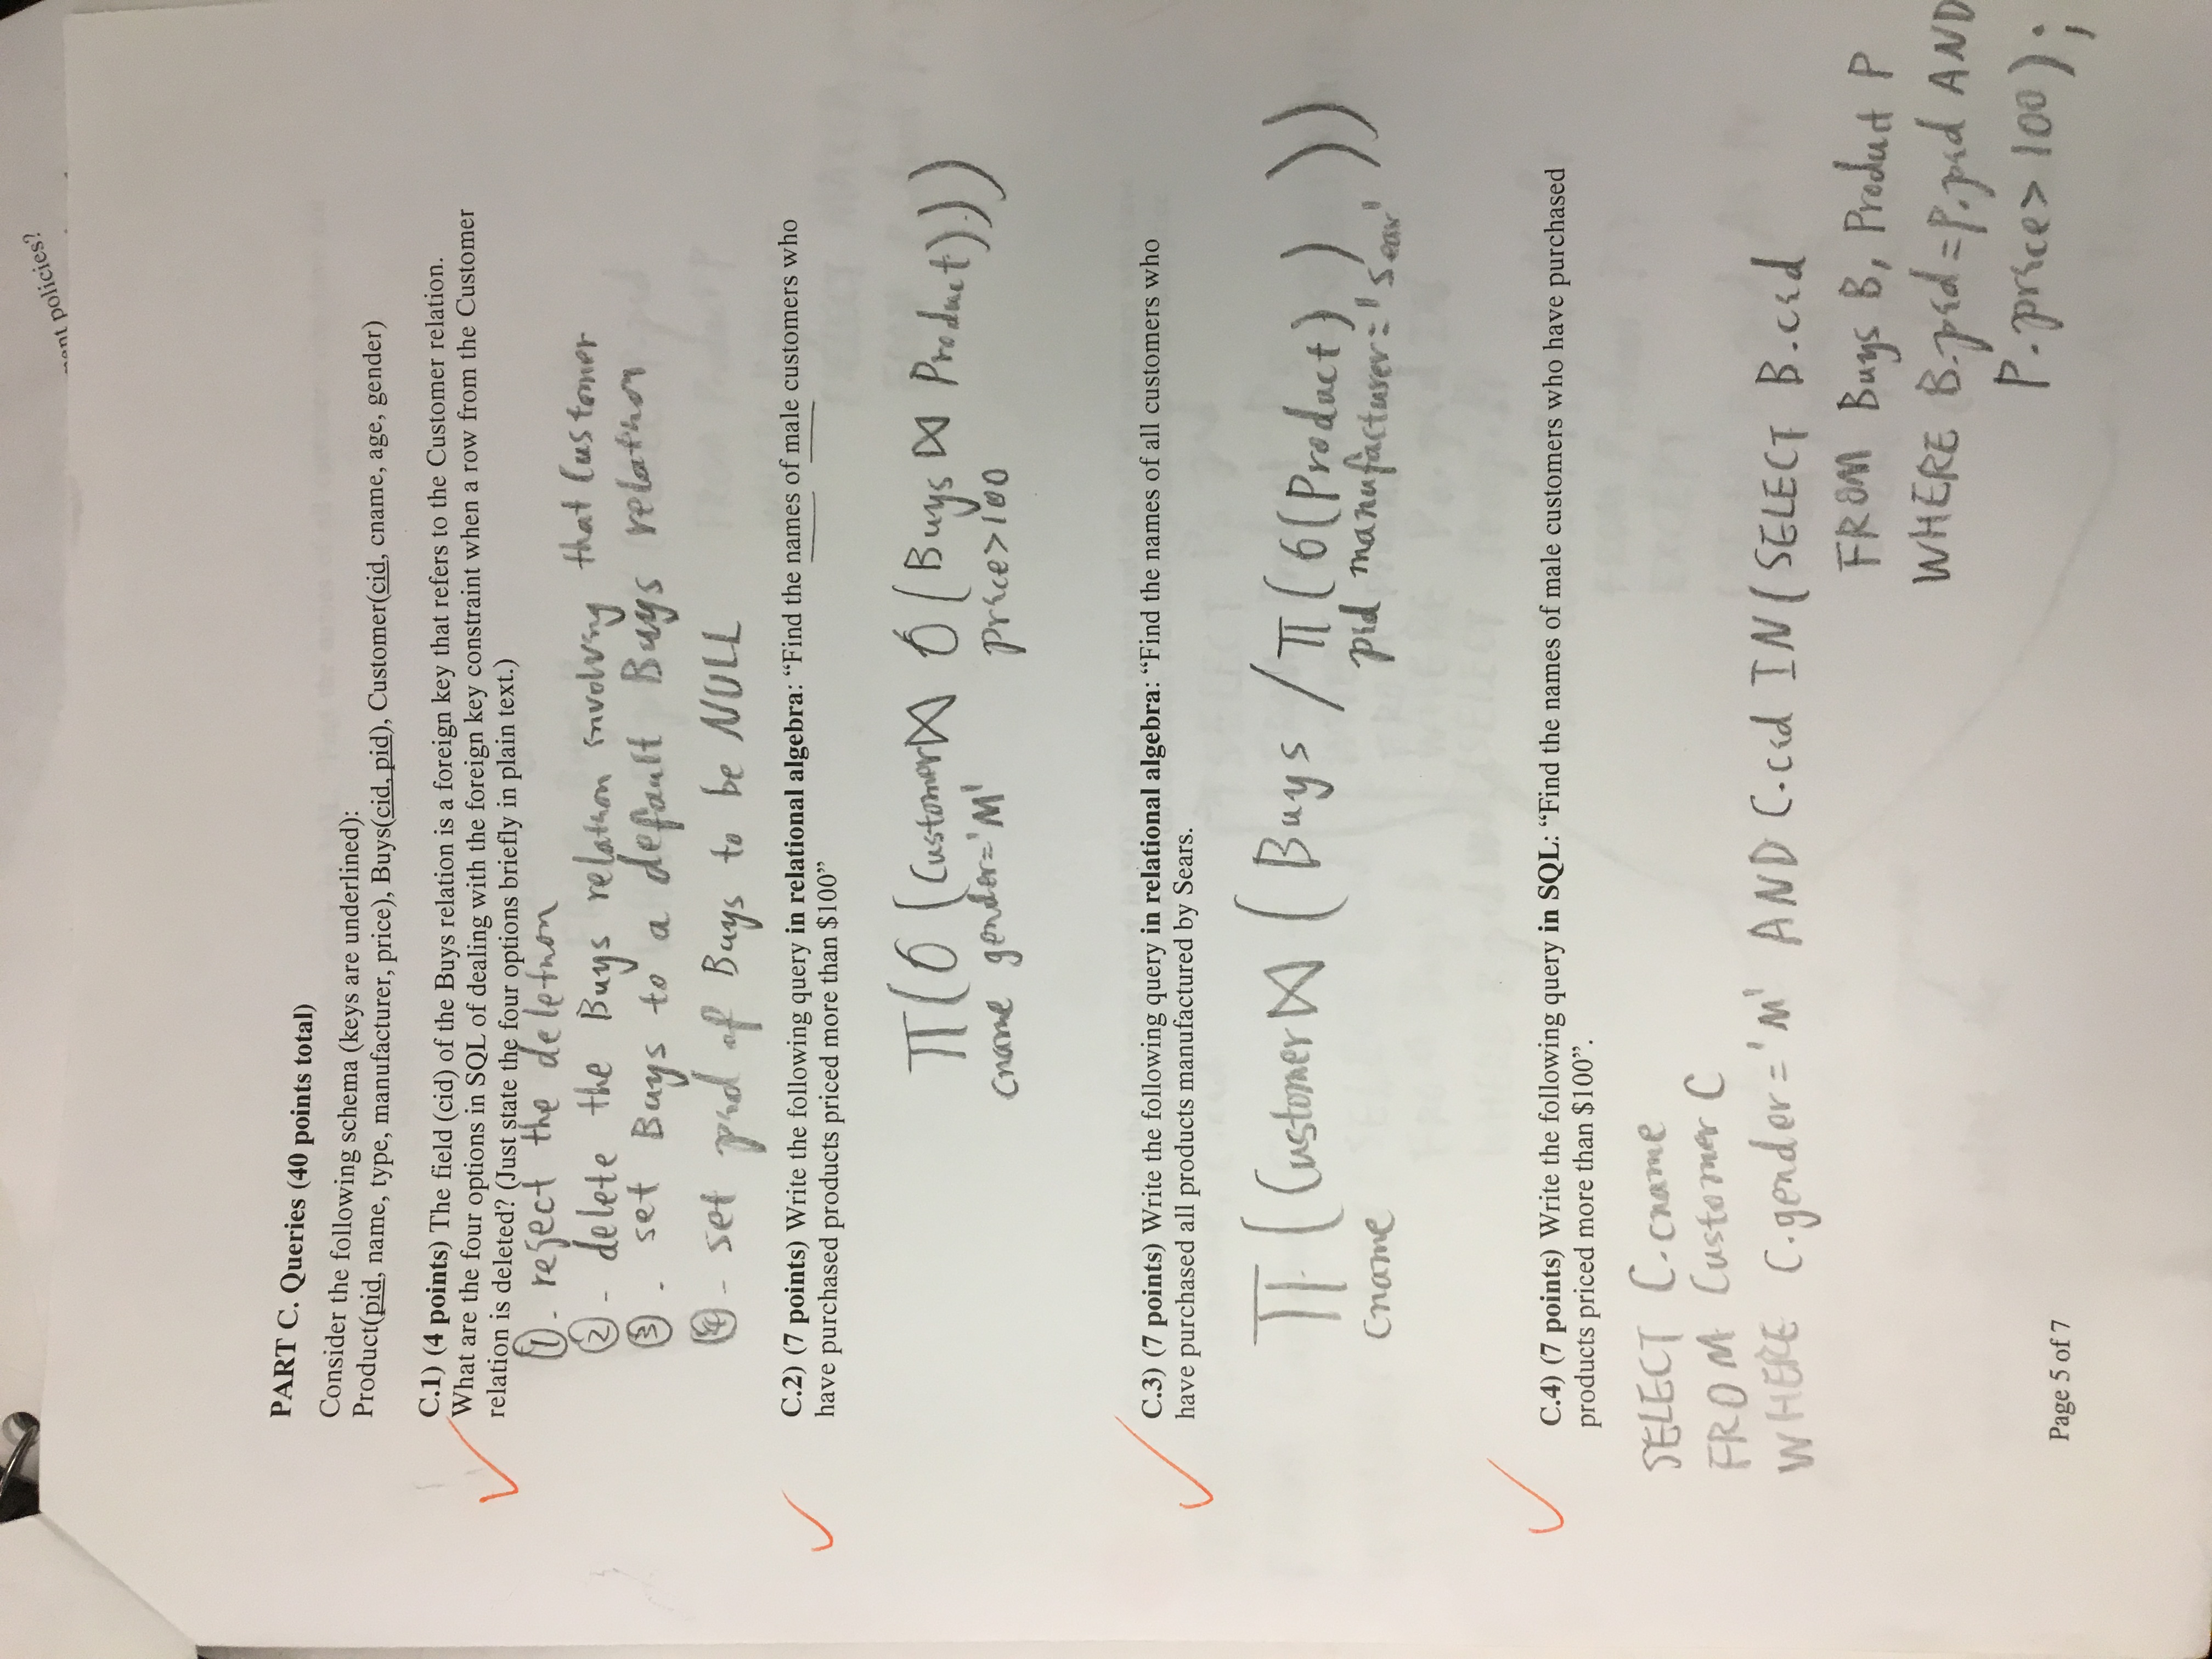 ment policies?
PART C. Queries (40 points total)
Consider the following schema (keys are underlined):
Product(pid, name, type, manufacturer, price), Buys(cid, pid), Customer(cid, cname, age, gender)
C.1) (4 points) The field (cid) of the Buys relation is a foreign key that refers to the Customer relation.
What are the four options in SQL of dealing with the foreign key constraint when a row from the Customer
relation is deleted? (Just state the four options briefly in plain text.)
①. reject the deletion
②- delete the Buys relation involving that Customer
③. set Buys to a default Buys relation
④- set pid of Buys to be NULL
C.2) (7 points) Write the following query in relational algebra: “Find the names of male customers who
have purchased products priced more than $100”
π(σ(Customer⋈ σ(Buys ⋈ Product)))
cname gender='M' price>100
C.3) (7 points) Write the following query in relational algebra: “Find the names of all customers who
have purchased all products manufactured by Sears.
π(Customer⋈(Buys /π(σ(Product))))
cname pid manufacturer='Sear'
C.4) (7 points) Write the following query in SQL: “Find the names of male customers who have purchased
products priced more than $100”.
SELECT C.cname
FROM Customer C
WHERE C.gender='M' AND C.cid IN(SELECT B.cid
FROM Buys B, Product P
WHERE B.pid=P.pid AND
P.price>100);
Page 5 of 7